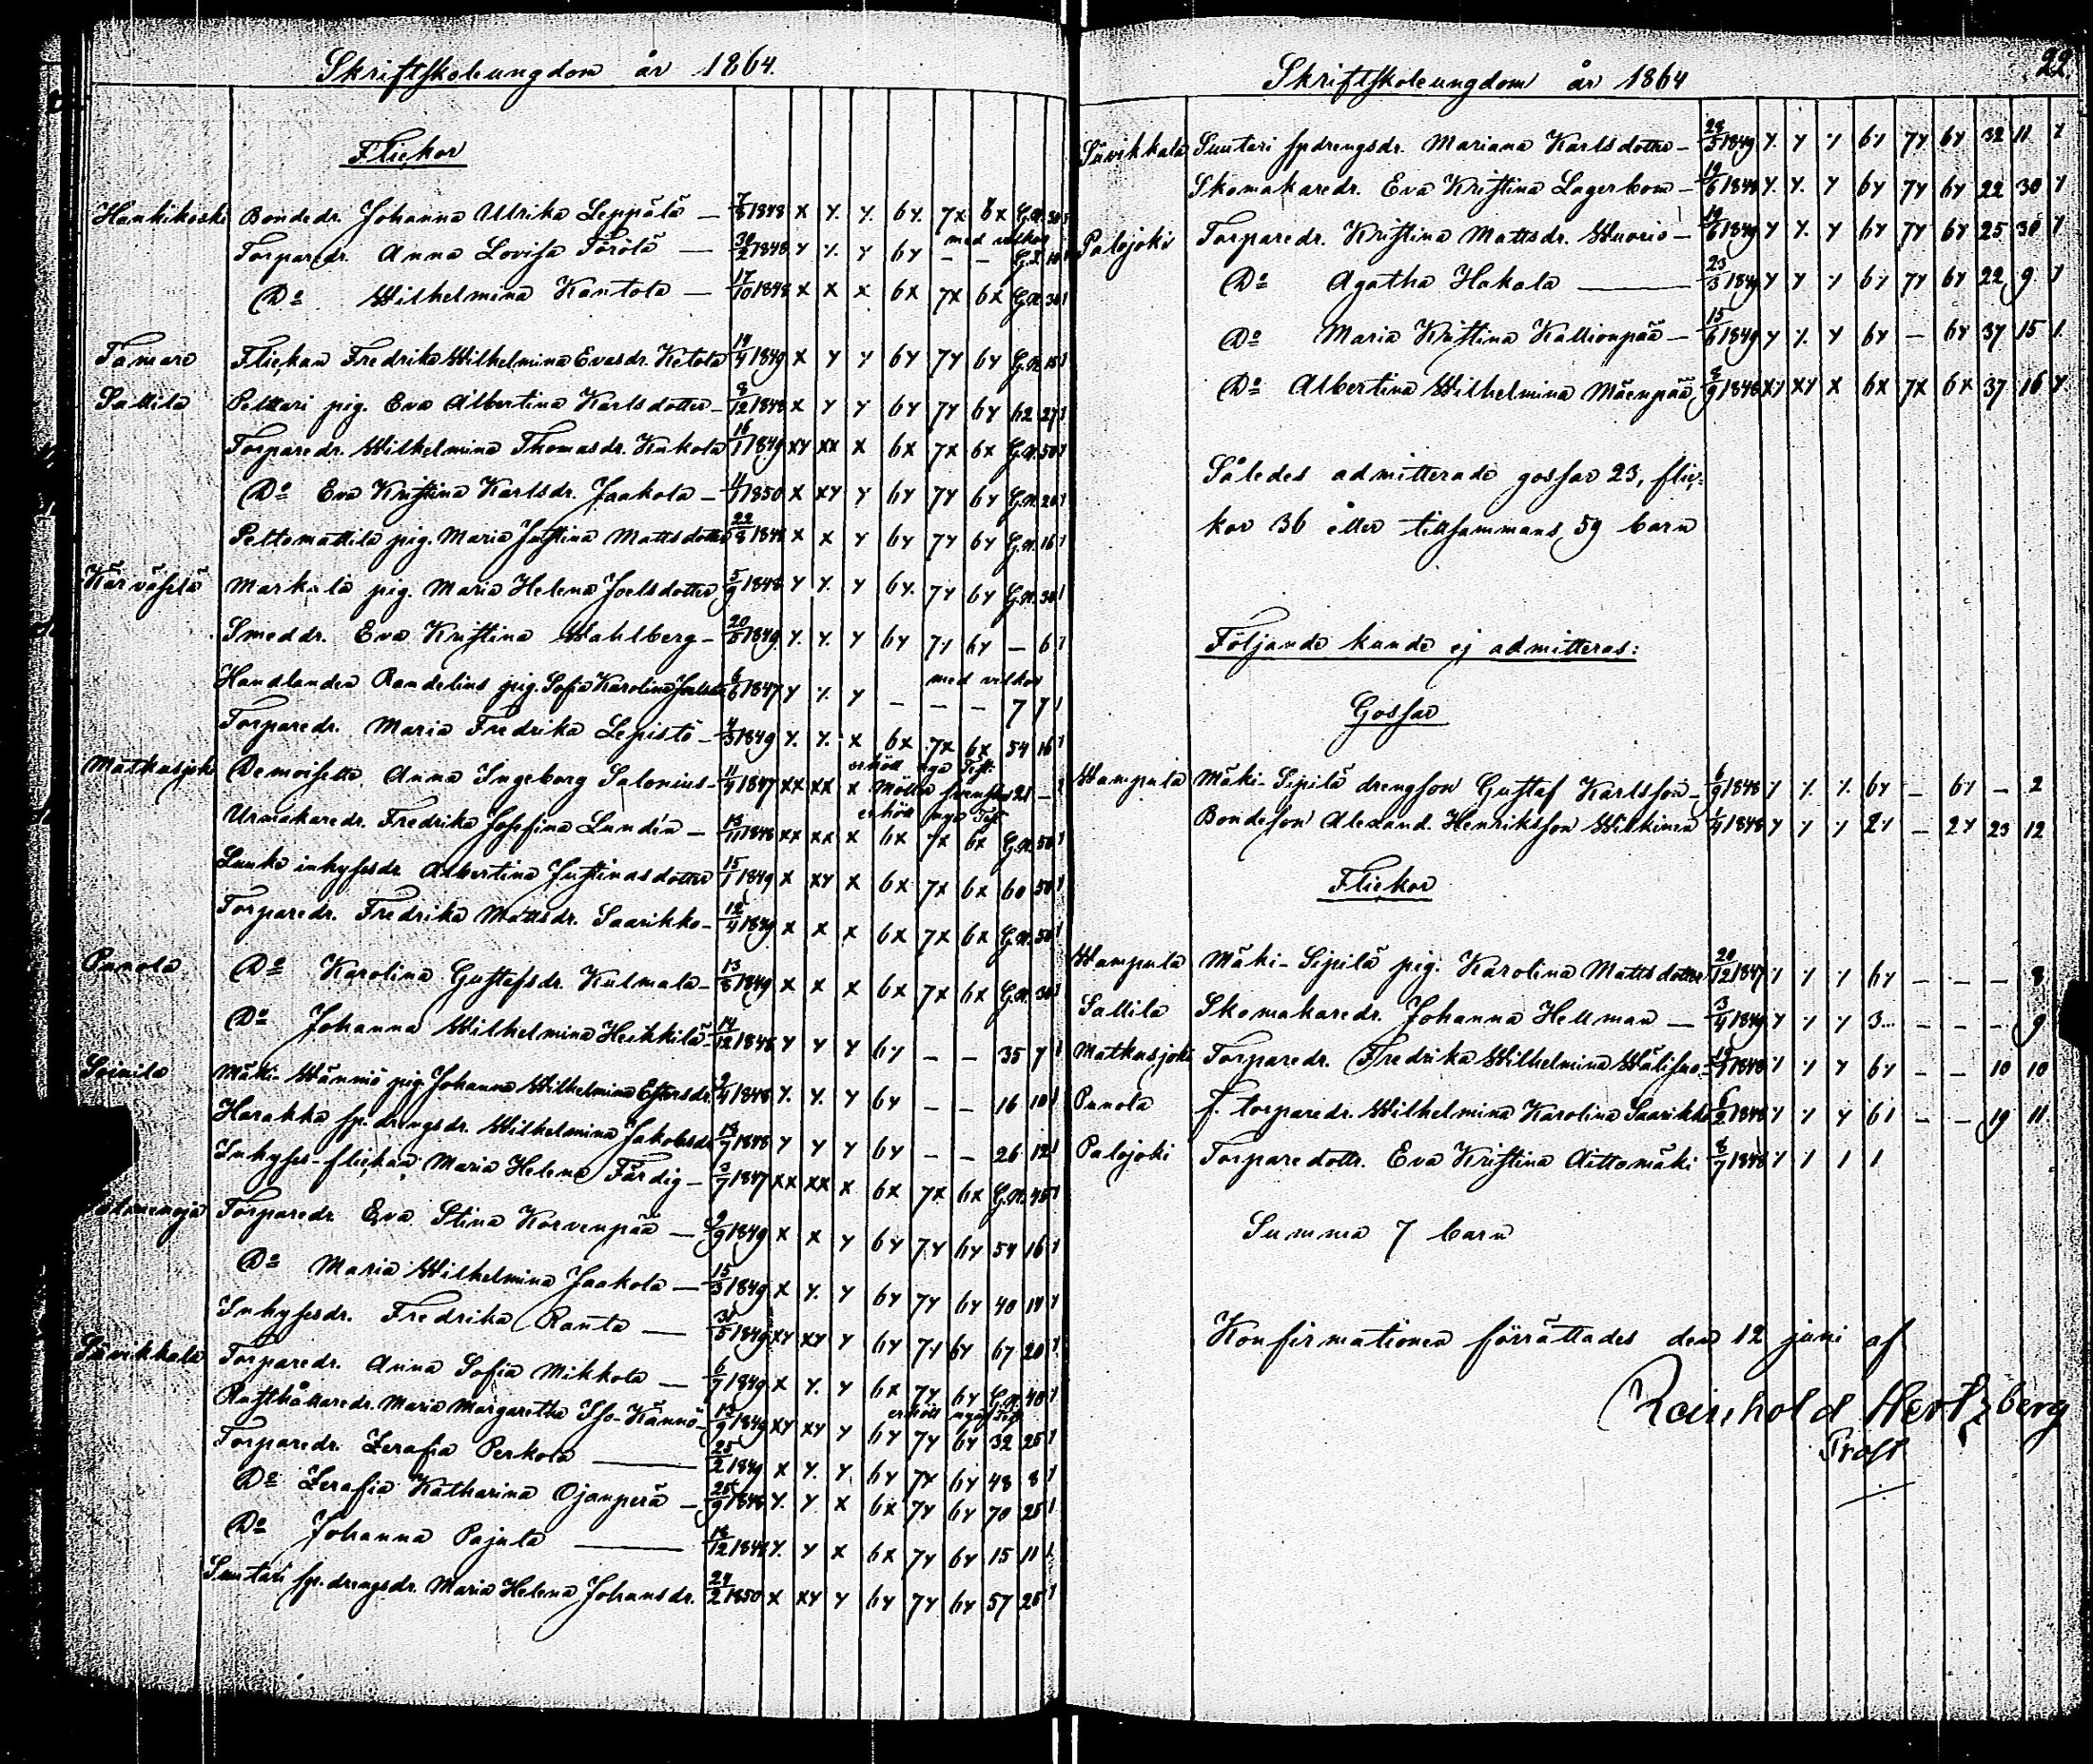 Skriftskoleungdom år 1864.
Flickor
Hankikoski Bondedr. Johanna Ulrika Leppälä — 7/8 1848 x y y. 6y. 7x 6x G.N. 30
med vilkor
Torparedr. Anna Lovisa Törölä — 30/2 1848 y y. y 6y — — G.T. 10
Do Wilhelmina Kantola — 17/10 1848 x x x 6x 7x 6x G.N. 30
Tamare Flickan Fredrika Wilhelmina Evasdr. Ketola 14/4 1849 x y y 6y 7y 6y G.N. 15
Sallila Pelttari pig. Eva Albertina Karlsdotter — 8/12 1848 x y y 6y 7y 6y 62 27
Torparedr. Wilhelmina Thomasdr. Kukola 16/1 1849 xy xx x 6x 7x 6x G.N. 50
Do Eva Kristina Karlsdr. Jaakola — 1850 x xy y 6y 7y 6y G.N. 20
Peltomattila pig. Maria Justina Mattsdotter 22/8 1848 x x y 6y 7y 6y G.N. 16
Kärväselä Markula pig. Maria Helena Joelsdotter 5/9 1848 y y. y 6y. 7y 6y G.N. 30
Smeddr. Eva Kristina Wahlberg — 20/5 1849 y. y. y 6y 7y 6y — 6
med vilkor
Handlanden Randelins pig. Sofia Karolina 6/6 1847 y y. y — — — 7 7
Torparedr. Maria Fredrika Lepistö — 4/3 1849 y. y. x 6x 7x 6x 54 16
erhöll nya Test.
Matkusjoki Demoiselle Anna Ingeborg Salonius — 11/4 1847 xx xx x 21 —
erhöll nya Test.
Urmakaredr. Fredrika Josefina Lundén — 13/11 1848 xx xx x 6x 7x 6x G.N. 50
Lunka inhysesdr. Albertina Justinasdotter 15/1 1849 x xy x 6x 7x 6x 60 50
Torparedr. Fredrika Mattsdr. Saarikko — 12/4 1849 x x x 6x 7x 6x G.N. 50
Punola Do Karolina Gustafsdr. Kulmala — 13/8 1849 x x x 6x 7x 6x G.N. 30
Do Johanna Wilhelmina Heikkilä — 14/12 1848 y y y 6y — — 35 7
Soinila Mäki-Männiö pig. Johanna Wilhelmina Estersdr. 9/4 1848 y. y. y 6y — — 16 10
Harakka sp. drengsdr. Wilhelmina Jakobsdr. 13/7 1848 y y y 6y — — 26 12
Inhyses-flickan Maria Helena Färdig — 3/7 1847 xx xx x 6x 7x 6x G.N. 45
Torparedr. Eva Stina Korvenpää — 9/9 1849 x x y 6y 7y 6y 54 16
Do Maria Wilhelmina Jaakola — 15/3 1849 x y. y 6y 7y 6y 40 14
Inhysesdr. Fredrika Ranta — 31/5 1849 xy xy y 6y 7y 6y 67 20
Sävikkala Torparedr. Anna Sofia Mikkola — 6/7 1849 x y. y 6x 7y 6y G.N. 40
erhöll nya Test.
Rusthållaredr. Maria Margaretha Iso-Kännö — 13/9 1849 xy xy y 6y 7y 6y 32 25
Torparedr. Serafia Perkola — 25/2 1849 x y. y. 6y 7y 6y 48 8
Do Serafia Katharina Ojanperä — 25/9 1848 y. y x 6x 7y 6y 70 25
Do Johanna Pajula — 18/12 1848 y. y x 6x 7y 6y 15 11
Suutari sp. drengsdr. Maria Helena Johansdr. 24/2 1850 x xy y 6y 7y 6y 57 25
Skriftskoleungdom år 1864
22.
Sävikkala Suutari sp drengsdr. Mariana Karlsdotter — 28/5 1849 y. y y 6y 7y 6y 32 11 y
Skomakaredr. Eva Kristina Lagerbom — 19/6 1848 y. y. y 6y 7y 6y 22 30 y
Palojoki Torparedr. Kristina Mattsdr. Wuorio — 19/6 1849 y y. y 6y 7y 6y 25 30 y
Do Agatha Hakala — 23/3 1849 y y y 6y 7y 6y 22 9 y
Do Maria Kristina Kallionpää — 15/6 1849 y y. y 6y — 6y 37 15 y.
Do Albertina Wilhelmina Mäenpää 8/9 1848 xy xy x 6x 7x 6x 37 16 y
Således admitterade gossar 23, flic-
kor 36 eller tillsammans 59 barn
Följande kunde ej admitteras:
Gossar
Wampula Mäki-Sipilä drengson Gustaf Karlsson — 6/9 1848 y y. y. 6y — 6y — 2
Bondeson Alexand. Henriksson Wirkinen 1848 y y y 2y — 2y 23 12
Flickor
Wampula Mäki-Sipilä pig. Karolina Mattsdotter 20/12 1847 y y y 6y — — — 8
Sallila Skomakaredr. Johanna Hellman — 3/4 1849 y y y 3... — — — 9
Matkusjoki Torparedr. Fredrika Wilhelmina 1848 y y y 6y — — 10 10
Punola f. torparedr. Wilhelmina Karolina Saarikko 6/2 1848 y y y 6y — — 19 11
Palojoki Torparedottr. Eva Kristina Aittomäki 8/7 1848 y y y y
Summa 7 barn
Konfirmationen förrättades den 12 juni af
Reinhold Hertzberg
Prost